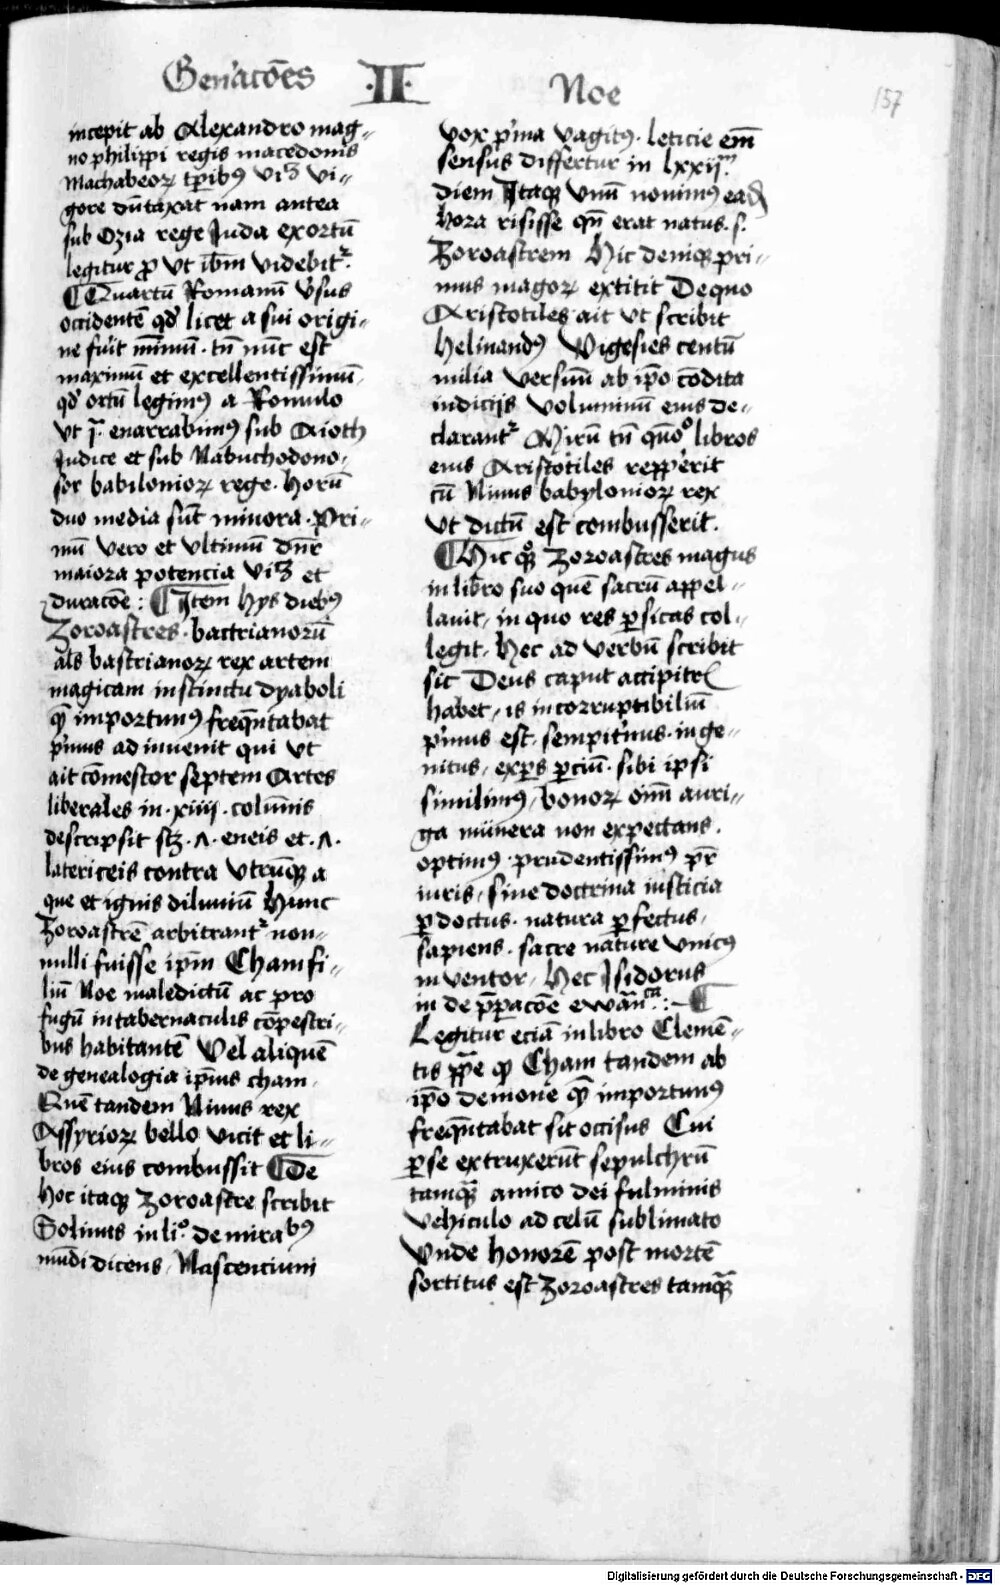 Gen'acōes ·II· Noe
157
incepit ab Alexandro mag-
no philippi regis macedonis
Machabeoꝝ tꝑibꝰ viꝫ vi-
gore dūtaxat nam antea
sub Ozia rege Juda exortū
legitur ꝓ vt ibm̄ videbitᷣ.
¶ Quartū Romanū v'sus
occidentē qd' licet a sui origi-
ne fu'it mīmū · tn̄ nūc est
maximū et excellentissimū,
qd' ortū legimꝰ a Romulo
vt j· enarrabimꝰ sub Aioth
Judice et sub Nabuchodono-
sor babilonioꝝ rege · Horū
duo media sūt minora · Pri-
mū vero et vltimū dn̄r
maiora potencia viꝫ et
duracōe : ¶ Item hys diebꝰ
Zoroastres · bactrianorū
als bastrianoꝝ rex artem
magicam instinctu dyaboli
q̄ importunꝰ freqn̄tabat
p'mus ad inuenit qui vt
ait cōmestor septem Artes
liberales in · xiiij · colūnis
descripsit scꝫ · ʌ · eneis et · ʌ ·
latericeis contra vtrūqꝫ a
que et ignis diluuiū Hunc
Zoroastrē arbitrantᷣ non-
nulli fuisse ip̄m Cham fi-
liū Noe maledictū ac pro
fugū in tabernaculis cōpestri-
bus habitantē Vel aliquē
de genealogia ip̄ius cham,
Quē tandem Ninus rex
Assyrioꝝ bello vicit et li-
bros eius combussit ¶ De
hoc itaqꝫ Zoroastre scribit
Solinus in li.º de mirabꝰ
mūdi dicens, Nascencium
vox p'ma vagitꝰ · leticie em̄
sensus differtur in lxxijᵐ
diem Itaqꝫ vnū nouimꝰ ead'
hora risisse qn̄ erat natus · s·
Zoroastrem Hic deniqꝫ pri-
mus magoꝝ extitit De quo
Aristotiles ait vt scribit
Helinandꝰ Vigesies centū
milia versuū ab ip̄o cōdita
indicijs voluminū eius de-
clarantᷣ Mirū tn̄ quō libros
eius Aristotiles repp'erit
cū Ninus babylonioꝝ rex
vt dictū est combusserit.
¶ Hic qꝫ Zoroastres magus
in libro suo quē sacrū appel-
lauit, in quo res ꝑsicas col-
legit, Hec ad verbū scribit
sic Deus caput accipitris
habet, is incorruptibiliū
p'mus est, sempit'nus · inge-
nitus, exꝑs ꝑciū · sibi ipsi
similimꝰ, bonoꝝ oīm auri-
ga munera non expectans,
optimꝰ · prudentissimꝰ pr̄
iuris, sine doctrina iusticia
ꝑdoctus · natura ꝑfectus,
sapiens · sacre nature vnicꝰ
inuentor, Hec Isidorus
in de p̄pacōe ewānᶜᵃ : ¶
Legitur eciā in libro Clemē-
tis ꝓꝓe ꝙ Cham tandem ab
ip̄o demone q̄ importunꝰ
freqn̄tabat sit occisus Cui
ꝑse extruxerūt sepulchrū
tamqꝫ amico dei fulminis
vehiculo ad celū sublimato
Vnde honorē post mortē
sortitus est Zoroastres tamqꝫ
Digitalisierung gefördert durch die Deutsche Forschungsgemeinschaft - DFG